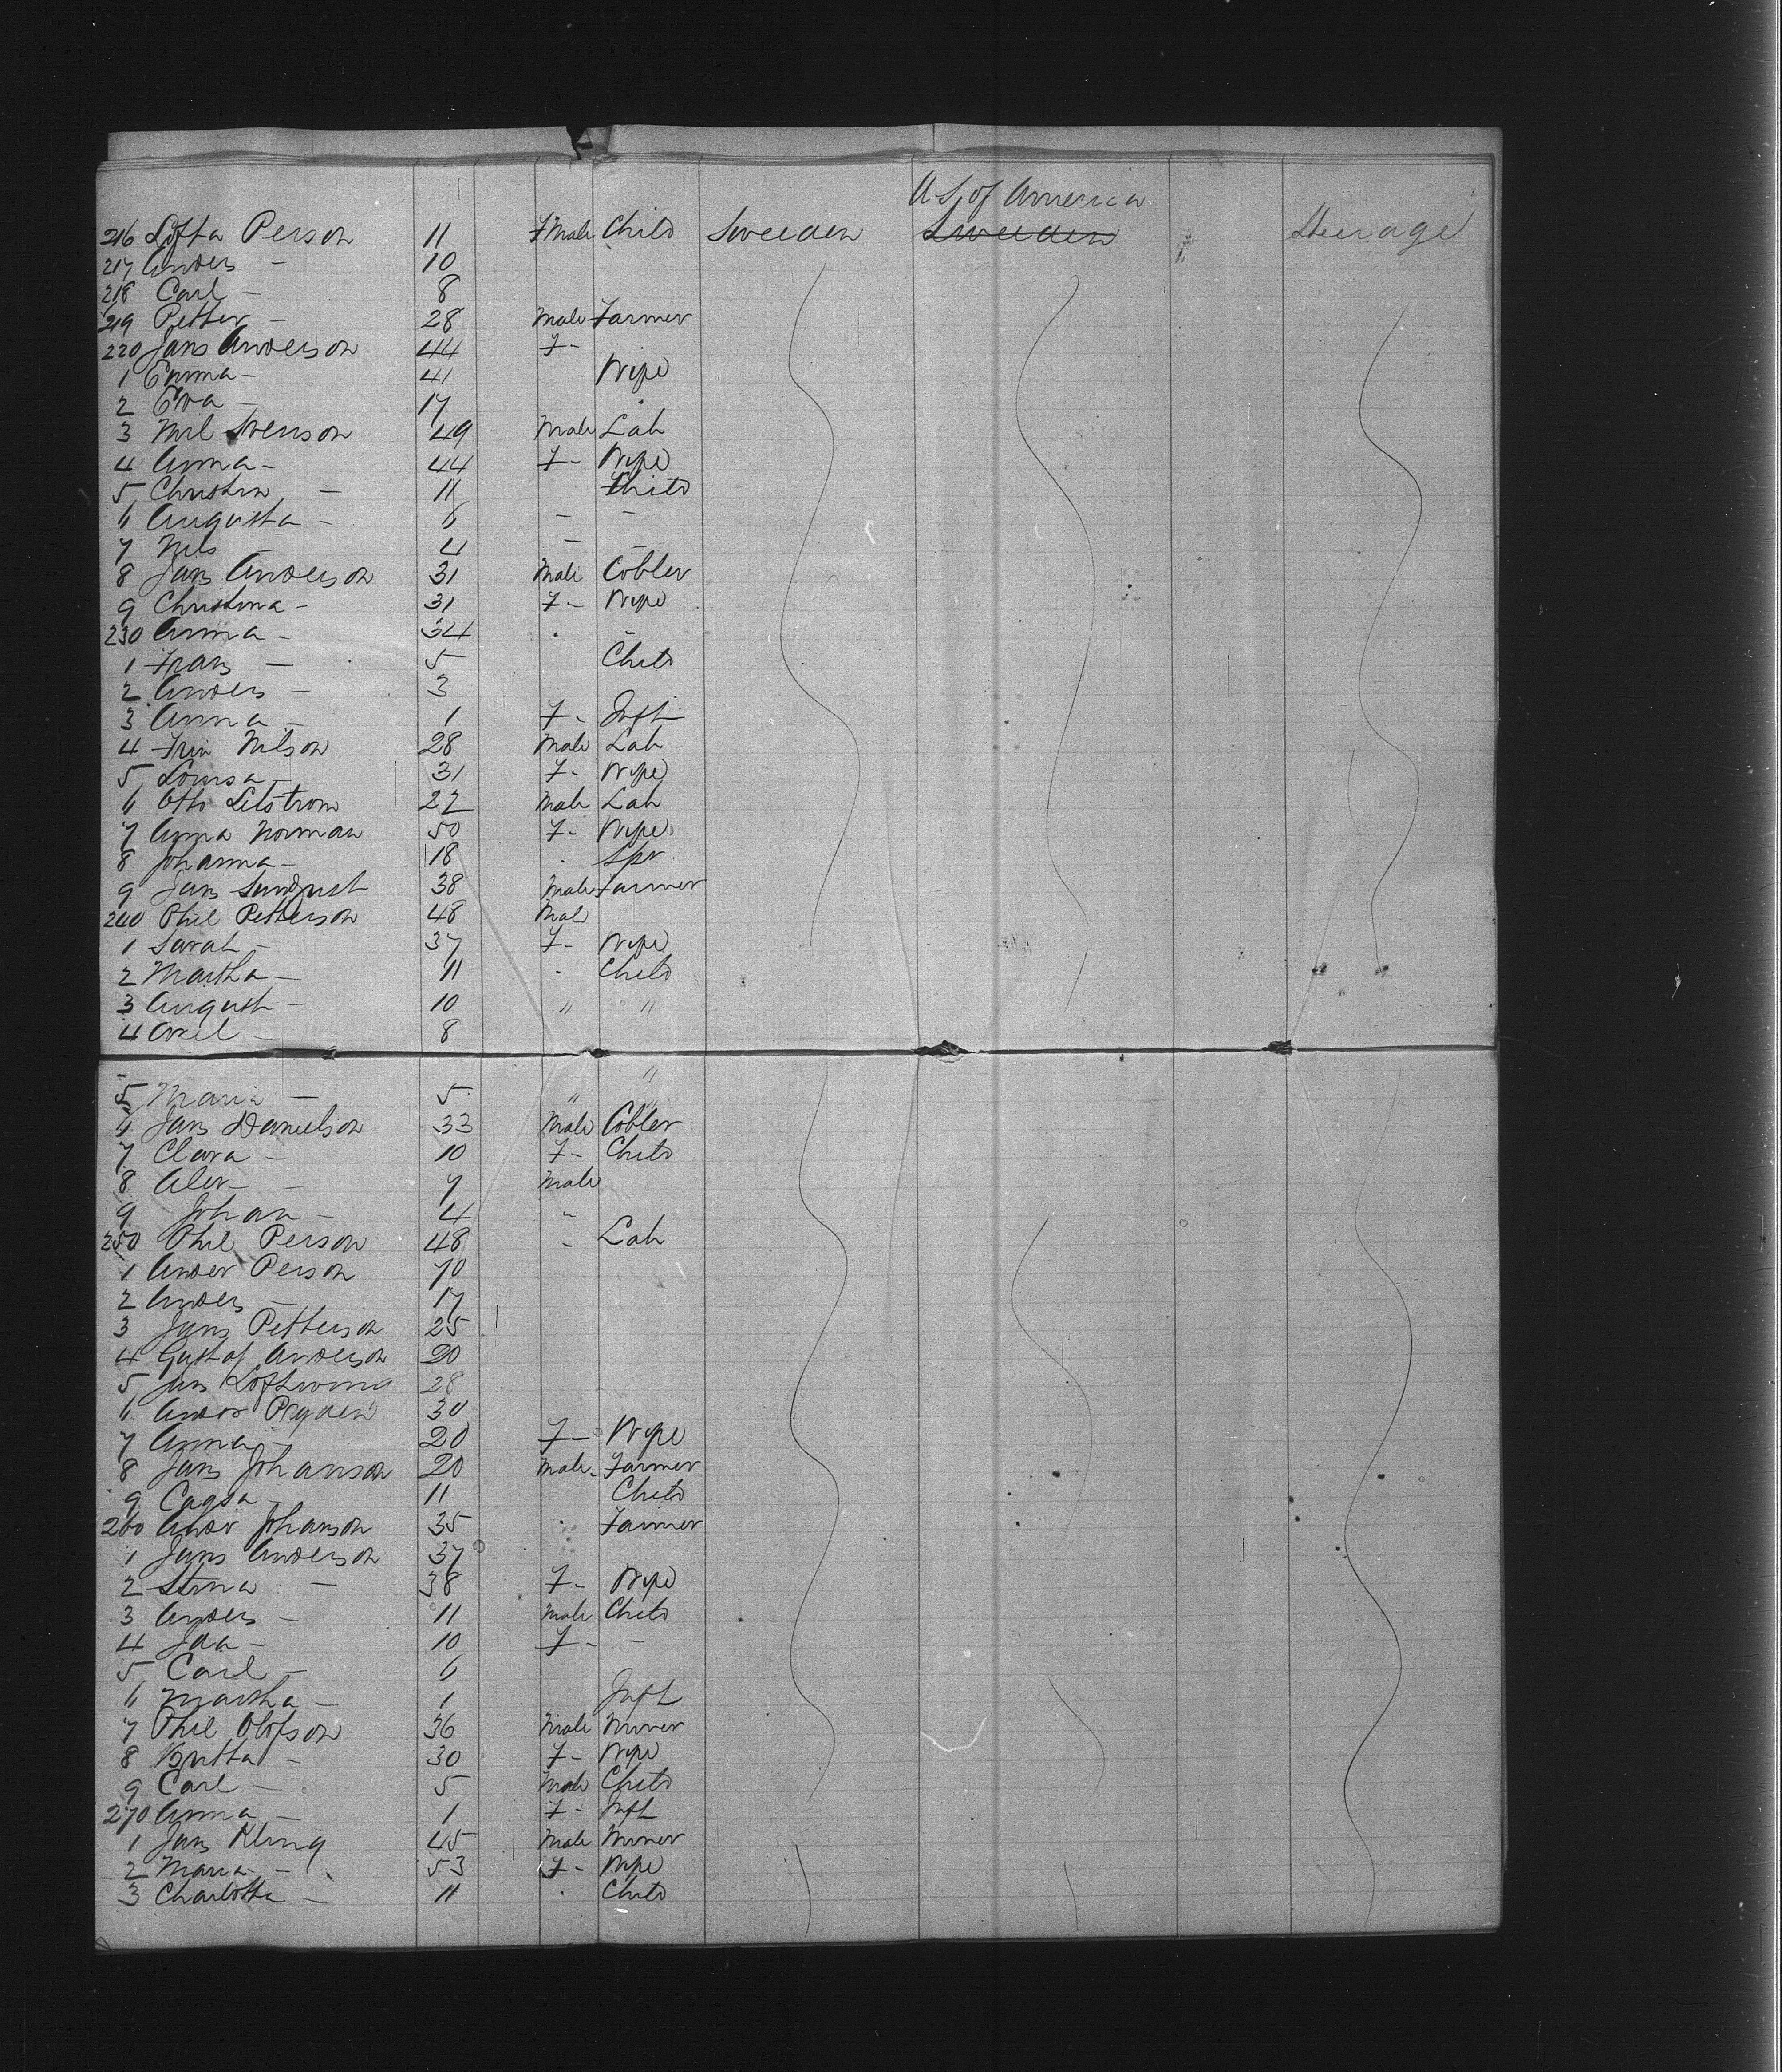 U S, of America
216 Lotta Person 11 Fmale Child Sweeden Sweeden Steerage
217 Anders - 10
218 Carl - 8
219 Petter - 28 Male Farmer
220 Jans Anderson 44 F-
1 Emma - 41 Wife
2 Eva - 17
3 Nil Svenson 49 Male Lab
4 Anna - 44 F- Wife
5 Christin - 11 Child
6 Augusta - 6 - -
7 Nils - 4 - -
8 Jans Anderson 31 Male Cobler
9 Christina - 31 F- Wife
230 Anna - 34 . -
1 Frans - 5 Child
2 Anders - 3
3 Anna - 1 F- Inft
4 Nilson 28 Male Lab
5 Louisa - 31 F- Wife
6 Otto Lilstrom 22 Male Lab
7 Anna Norman 50 F- Wife
8 Johanna - 18 . Spr.
9 Jans Sundqust 38 Male Farmer
240 Phil Petterson 48 Male
1 Sarah - 37 F- Wife
2 Martha - 11 . Child
3 August - 10 " "
4 Axel - 8
5 Maria - 5 " "
6 Jans Danielson 33 Male Cobler
7 Clara - 10 F- Child
8 Alex - 7 Male
9 Johan - 4 -
250 Phil Person 48 - Lab
1 Ander Person 70
2 Anders - 17
3 Jans Petterson 25
4 Gustaf Anderson 20
5 Jans 28
6 Ander 30
7 Anna - 20 F- Wife
8 Jans Johanson 20 Male - Farmer
9 Cagsa - 11 Child
260 Ander Johanson 35 . Farmer
1 Jans Anderson 37
2 Stina - 38 F- Wife
3 Anders - 11 Male Child
4 Ida - 10 F- -
5 Carl - 6
6 Martha - 1 Inft
7 Phil Olofson 36 Male Miner
8 Britta - 30 F- Wife
9 Carl - 5 Male Child
270 Anna - 1 F- Inft
1 Jans Kling 45 Male Miner
2 Maria - 53 F- Wife
3 Charlotta - 11 . Child